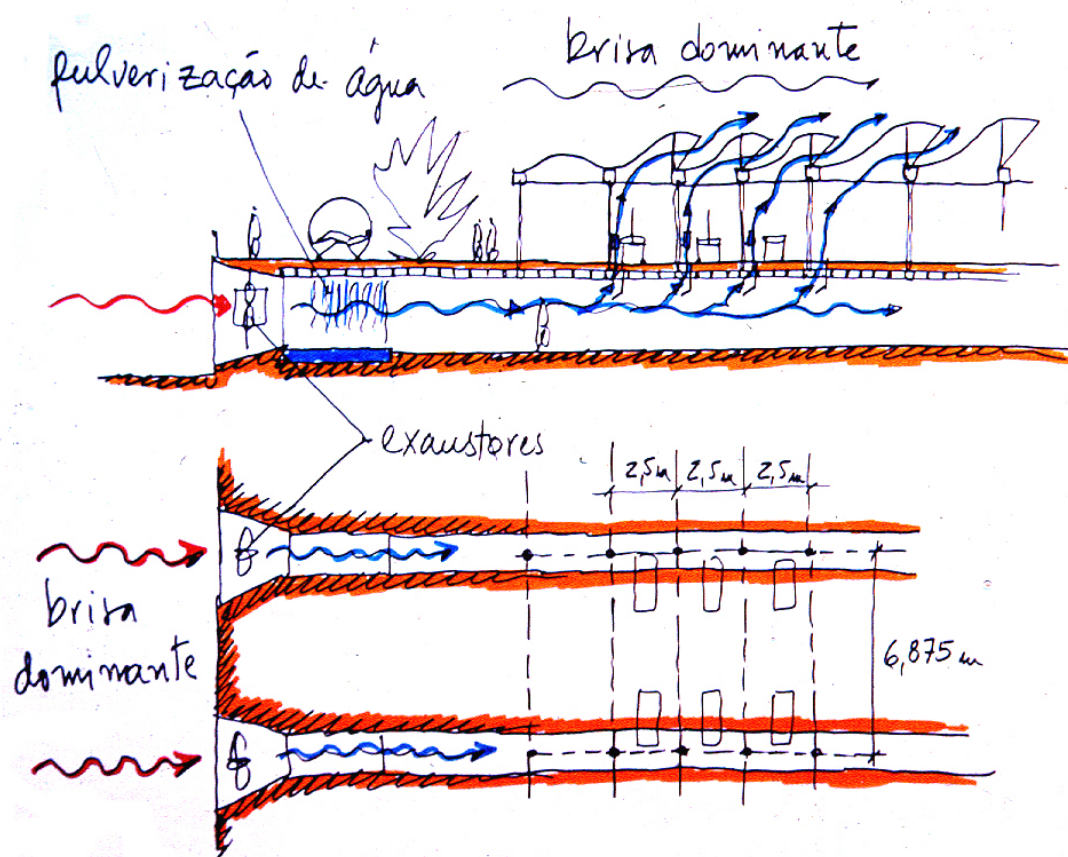 pulverização de água
brisa dominante
exaustores
2,5m 2,5m 2,5m
brisa
dominante
6,875 m